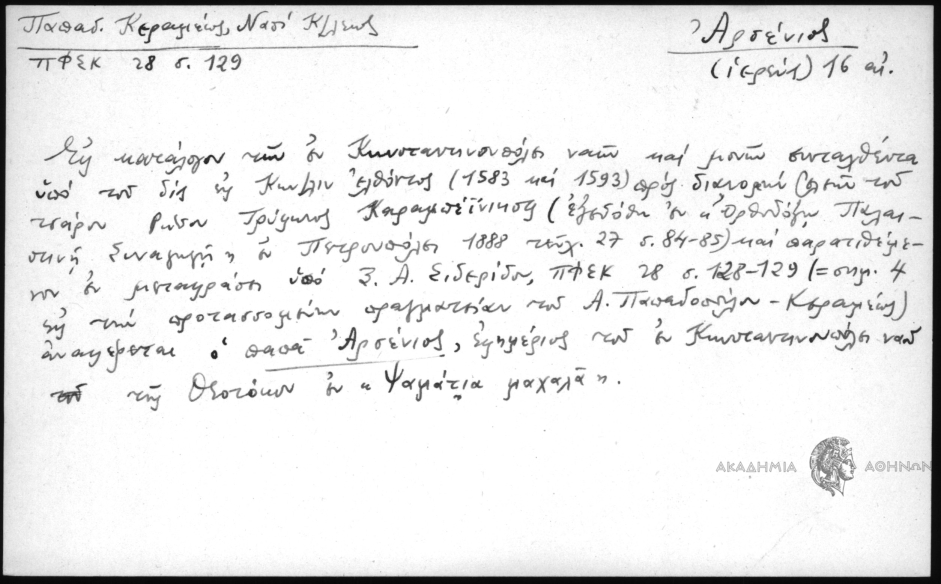 Παπαδ. Κεραμέως, Ναοί Κ/λεως
ΠΦΣΚ 28 σ. 129
Ἀρσένιος
(ἱερεύς) 16 αἰ.
Εἰς κατάλογον τῶν ἐν Κωνσταντινουπόλει ναῶν καὶ μονῶν συνταχθέντα
ὑπό τοῦ δίς εἰς Κων/λιν ἐλθόντος (1583 καί 1593) πρός διανομήν ἐλεῶν τοῦ
τσάρου Ρώσου Τρύφωνος Καραμπέϊνικωφ (ἐξεδόθη ἐν "Ὀρθοδόξῳ Παλαι-
στινῇ Συναγωγῇ" ἐν Πετρουπόλει 1888 τεῦχ. 27 σ. 84-85) καί παρατιθέμε-
νον ἐν μεταφράσει ὑπό Ξ. Α. Σιδερίδου, ΠΦΣΚ 28 σ. 128-129 (= σημ. 4
εἰς τήν προτασσομένην πραγματείαν τοῦ Α. Παπαδοπούλου-Κεραμέως)
ἀναφέρεται ὁ παπᾶ Ἀρσένιος, ἐφημέριος τοῦ ἐν Κωνσταντινουπόλει ναοῦ
τῆς Θεοτόκου ἐν "Ψαμάτια μαχαλᾷ".
ΑΚΑΔΗΜΙΑ ΑΘΗΝΩΝ